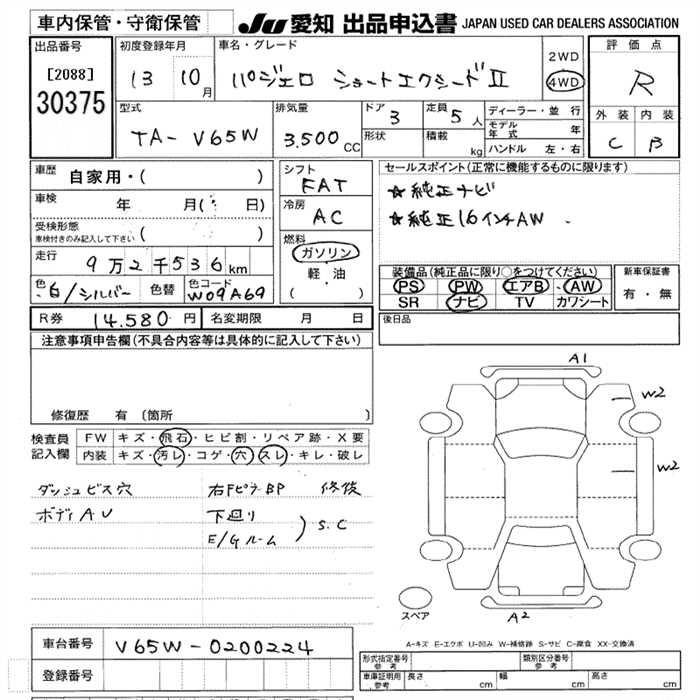 車内保管・守衛保管
JU 愛知 出品申込書 JAPAN USED CAR DEALERS ASSOCIATION
出品番号
[2088]
30375
初度登録年月
13 10月
車名・グレード
パジェロ ショートエクシードII
2WD
4WD
評価点
R
型式
TA- V65W
排気量
3.500 CC
ドア 3
形状
定員 5人
積載 kg
ディーラー・並 行
モデル年式 年
ハンドル 左・右
外装 内装
C B
車歴 自家用・( )
車検 年 月( 日)
受検形態
車検付きのみ記入して下さい ( )
走行 9万2千536km
色 白/シルバー 色替 色コード W09A69
シフト
FAT
冷房
AC
燃料
ガソリン
軽・油
( )
セールスポイント(正常に機能するものに限ります)
★純正ナビ
★純正16インチAW
装備品(純正品に限り○をつけてください)
PS PW エアB AW
SR ナビ TV カワシート
新車保証書
有・無
R券 14.580円 名変期限 月 日
後日品
注意事項申告欄(不具合内容等は具体的に記入して下さい)
修復歴 有 〔箇所 〕
検査員記入欄
FW キズ・飛石・ヒビ割・リペア跡・X要
内装 キズ・汚レ・コゲ・穴・スレ・キレ・破レ
ダッシュビス穴 右FピラーBP 修復
ボディAU 下廻り
E/Gルーム ) S.C
A1
W2
W2
A2
スペア
A-キズ E-エクボ U-凹み W-補修跡 S-サビ C-腐食 XX-交換済
車台番号 V65W-0200224
登録番号
形式指定番号 参考
類別区分番号 参考
車庫証明用 参考 長さ cm 幅 cm 高さ cm